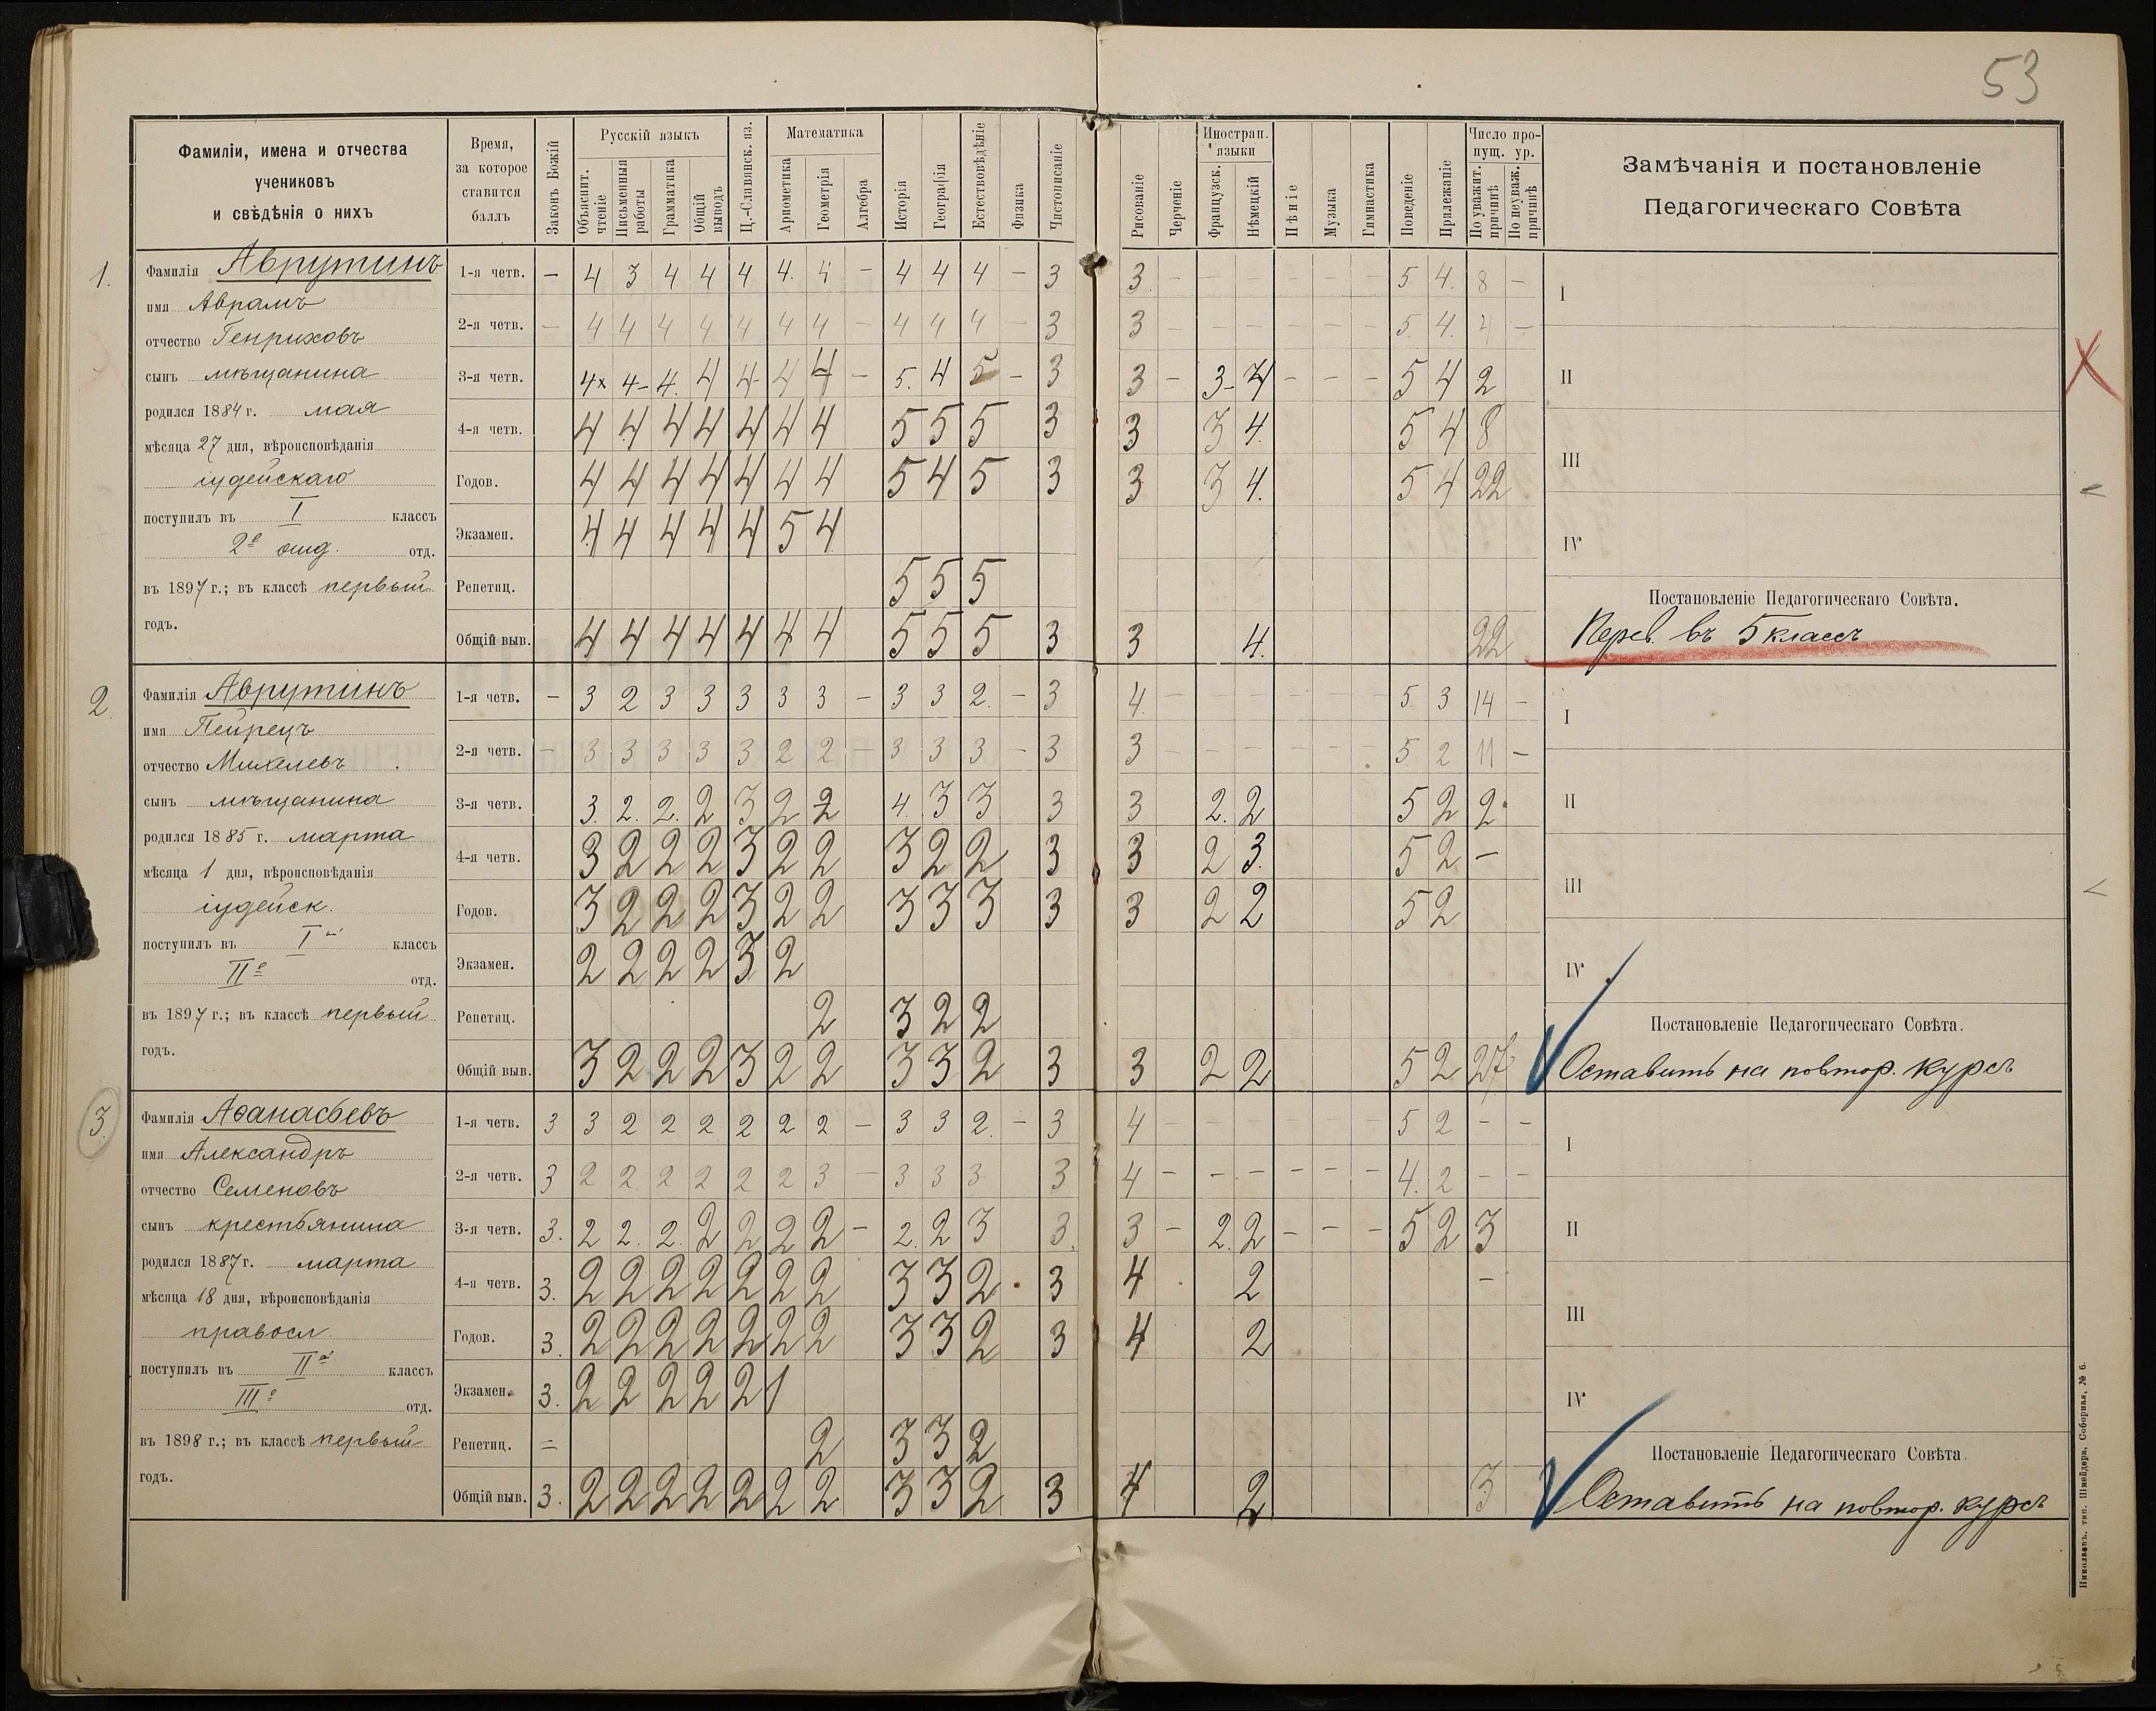 53
Фамиліи, имена и отчества
учениковъ
и свѣдѣнія о нихъ
Время,
за которое
ставится
баллъ
Законъ Божій
Русскій языкъ
Объяснит. чтеніе
Письменныя работы
Грамматика
Общій выводъ
Ц.-Славянск. яз.
Математика
Ариөметика
Геометрія
Алгебра
Исторія
Географія
Естествовѣдѣніе
Физика
Чистописаніе
Рисованіе
Черченіе
Иностран. языки
Французск.
Нѣмецкій
Пѣніе
Музыка
Гимнастика
Поведеніе
Прилежаніе
Число пропущ. ур.
По уважит. причинѣ
По неуваж. причинѣ
Замѣчанія и постановленіе
Педагогическаго Совѣта
1.
Фамилія Аврутинъ
имя Аврамъ
отчество Генриховъ
сынъ мѣщанина
родился 1884 г. мая
мѣсяца 27 дня, вѣроисповѣданія
іудейскаго
поступилъ въ I классъ
2е отд. отд.
въ 1897 г.; въ классѣ первый
годъ.
1-я четв. — 4 3 4 4 4 4. 4 — 4 4 4 — 3 3. — — — — — — 5 4. 8 —
2-я четв. — 4 4 4 4 4 4 4 — 4 4 4 — 3 3 — — — — — — 5. 4. 4 —
3-я четв. 4x 4- 4. 4 4- 4 4 — 5. 4 5 — 3 3 — 3- 4 — — — 5 4 2
4-я четв. 4 4 4 4 4 4 4 5 5 5 3 3 3 4. 5 4 8
Годов. 4 4 4 4 4 4 4 5 4 5 3 3 3 4. 5 4 22
Экзамен. 4 4 4 4 4 5 4
Репетиц. 5 5 5
Общій выв. 4 4 4 4 4 4 4 5 5 5 3 3 4. 22
I
II
III
IV
Постановленіе Педагогическаго Совѣта.
Перев. въ 5 классъ
2.
Фамилія Аврутинъ
имя Пейрецъ
отчество Михелевъ
сынъ мѣщанина
родился 1885 г. марта
мѣсяца 1 дня, вѣроисповѣданія
іудейск.
поступилъ въ I классъ
IIе отд.
въ 1897 г.; въ классѣ первый
годъ.
1-я четв. — 3 2 3 3 3 3 3 — 3 3 2. — 3 4. — — — — — — 5 3 14 —
2-я четв. — 3 3 3 3 3 2 2 — 3 3 3 — 3 3 — — — — — — 5. 2 11 —
3-я четв. 3. 2. 2. 2 3 2 2 4. 3 3 3 3 2. 2 5 2 2
4-я четв. 3 2 2 2 3 2 2 3 2 2 3 3 2 3. 5 2 —
Годов. 3 2 2 2 3 2 2 3 3 3 3 3 2 2 5 2
Экзамен. 2 2 2 2 3 2
Репетиц. 2 3 2 2
Общій выв. 3 2 2 2 3 2 2 3 3 2 3 3 2 2 5 2 27
I
II
III
IV
Постановленіе Педагогическаго Совѣта.
Оставить на повтор. курсъ
3.
Фамилія Аѳанасьевъ
имя Александръ
отчество Семеновъ
сынъ крестьянина
родился 1887 г. марта
мѣсяца 18 дня, вѣроисповѣданія
правосл.
поступилъ въ II классъ
IIIе отд.
въ 1898 г.; въ классѣ первый
годъ.
1-я четв. 3 3 2 2 2 2 2 2 — 3 3 2. — 3 4 — — — — — — 5 2 — —
2-я четв. 3 2 2 2 2 2 2 3 — 3 3 3 3 4 — — — — — — 4. 2 — —
3-я четв. 3. 2 2. 2. 2 2 2 2 — 2. 2 3 3. 3 — 2. 2 — — — 5 2 3
4-я четв. 3. 2 2 2 2 2 2 2 3 3 2 3 4 2 —
Годов. 3. 2 2 2 2 2 2 2 3 3 2 3 4 2
Экзамен. 3. 2 2 2 2 2 1
Репетиц. = 2 3 3 2
Общій выв. 3. 2 2 2 2 2 2 2 3 3 2 3 4 2 3
I
II
III
IV
Постановленіе Педагогическаго Совѣта.
Оставить на повтор. курсъ
Николаевъ, тип. Шнейдера, Соборная, № 6.